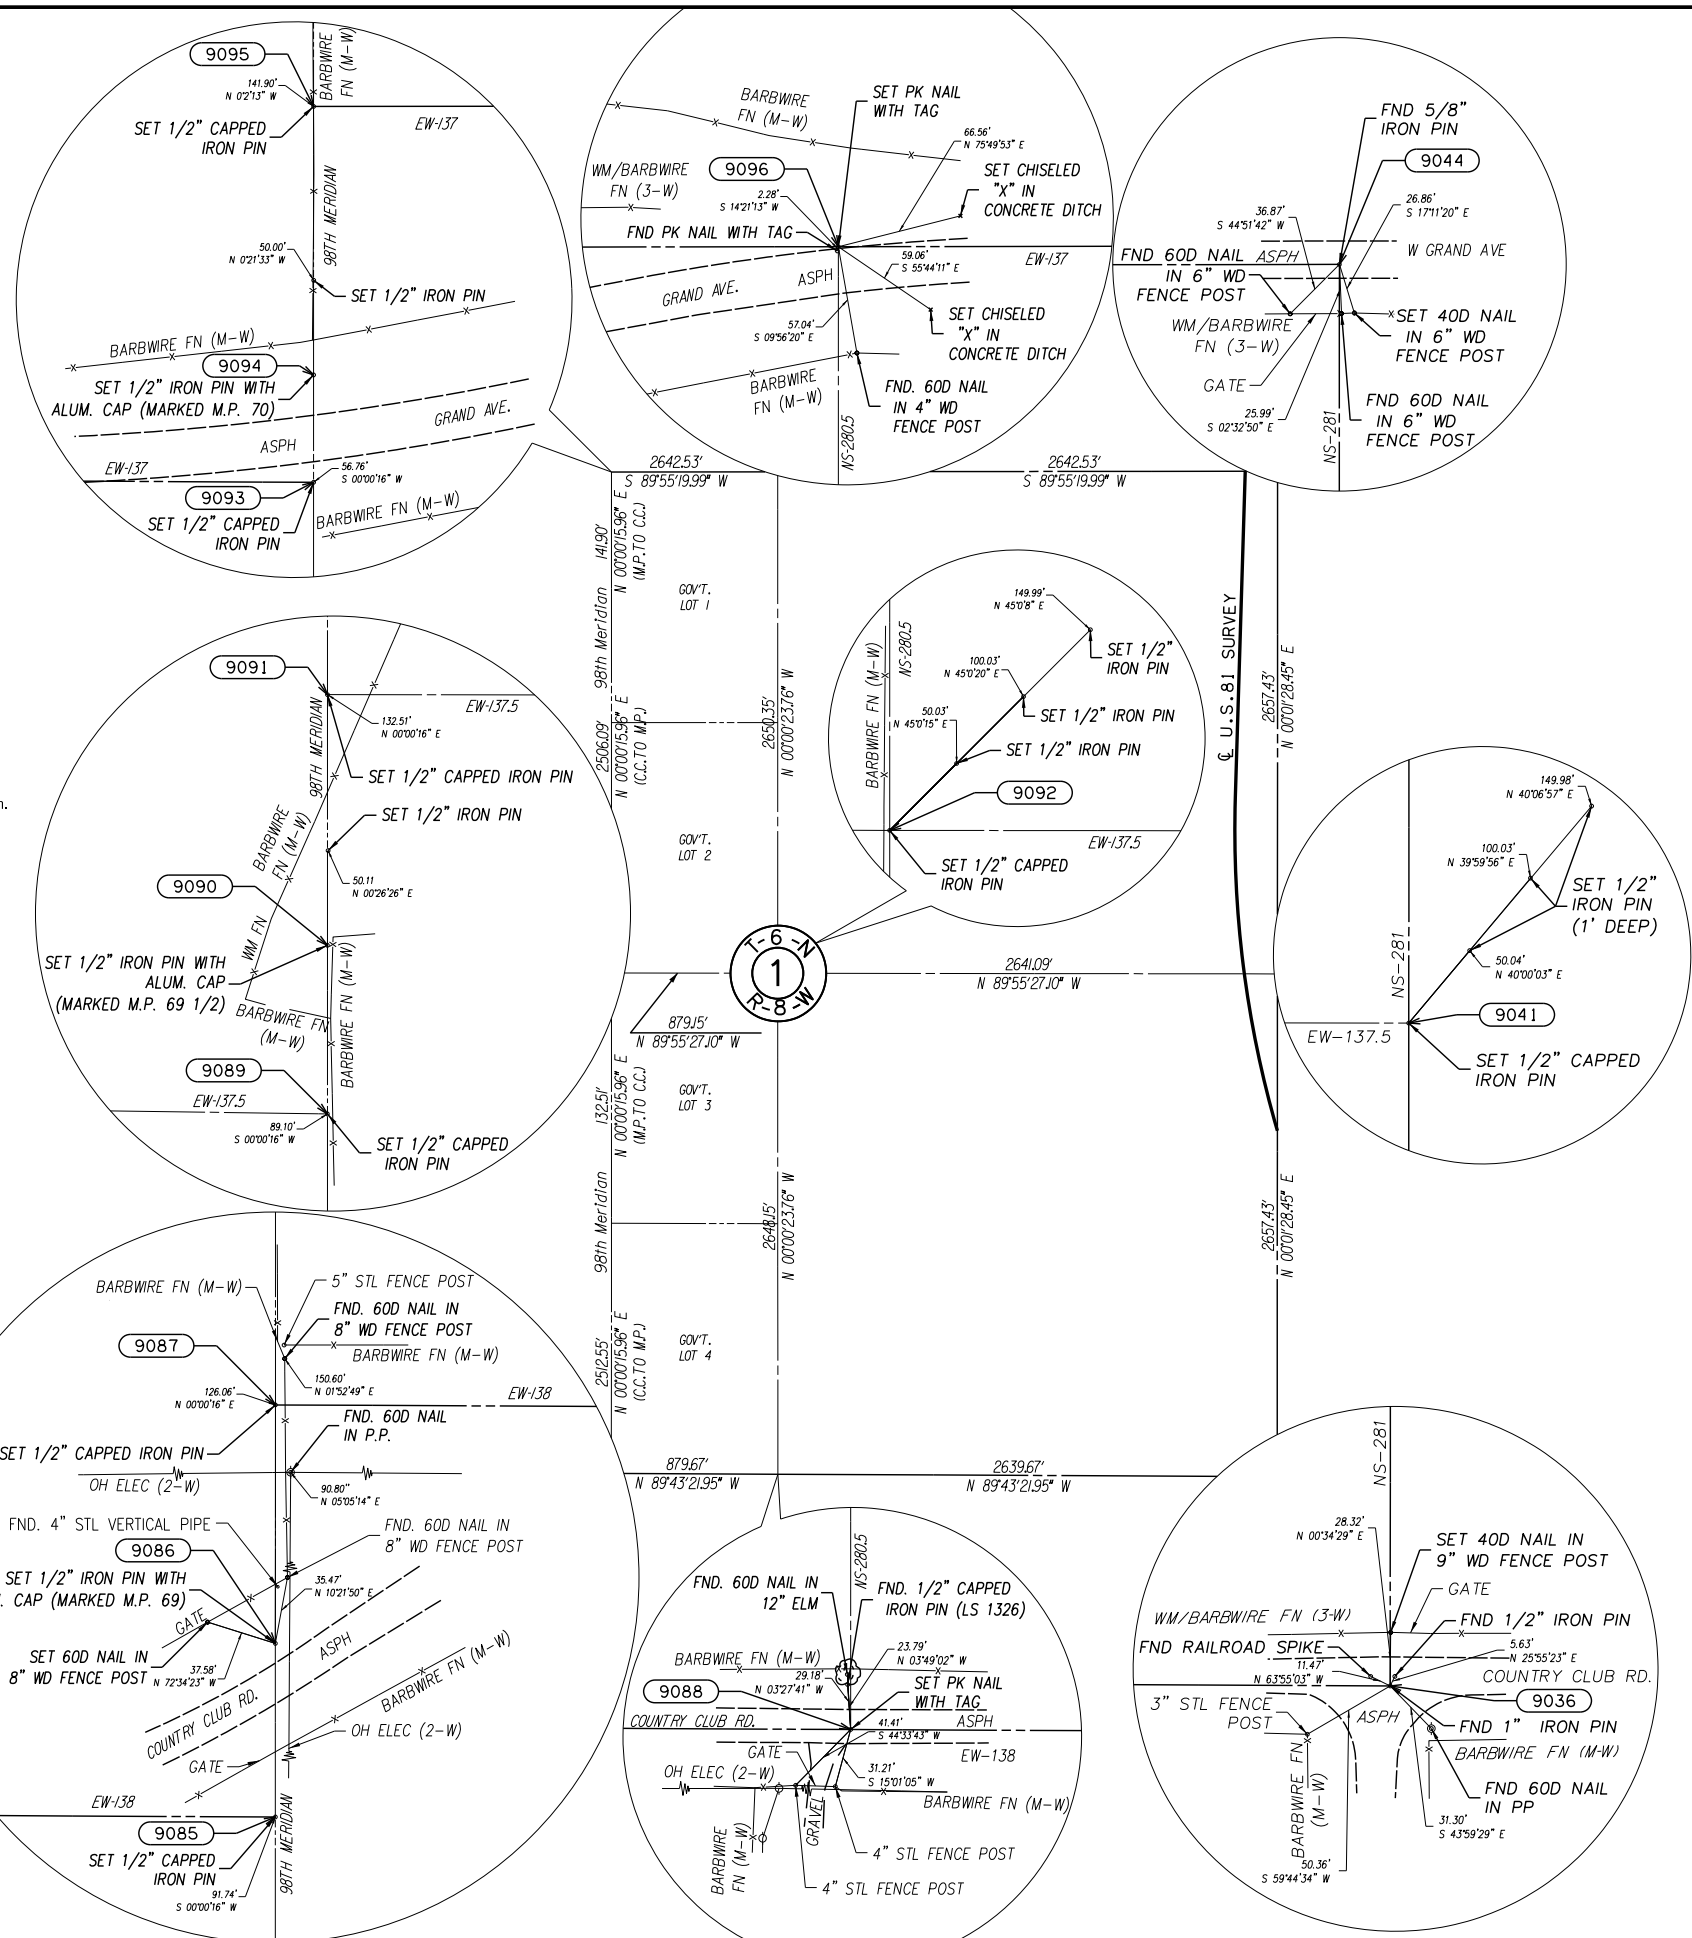 9095
141.90'
N 0°2'13" W
SET 1/2" CAPPED
IRON PIN
BARBWIRE
FN (M-W)
EW-137
98TH MERIDIAN
50.00'
N 0°21'33" W
SET 1/2" IRON PIN
BARBWIRE FN (M-W)
9094
SET 1/2" IRON PIN WITH
ALUM. CAP (MARKED M.P. 70)
GRAND AVE.
ASPH
EW-137
56.76'
S 00°00'16" W
9093
SET 1/2" CAPPED
IRON PIN
BARBWIRE FN (M-W)
BARBWIRE
FN (M-W)
SET PK NAIL
WITH TAG
66.56'
N 75°49'53" E
WM/BARBWIRE
FN (3-W)
9096
2.28'
S 14°21'13" W
SET CHISELED
"X" IN
CONCRETE DITCH
FND PK NAIL WITH TAG
59.06'
S 55°44'11" E
EW-137
ASPH
GRAND AVE.
57.04'
S 09°56'20" E
SET CHISELED
"X" IN
CONCRETE DITCH
BARBWIRE
FN (M-W)
FND. 60D NAIL
IN 4" WD
FENCE POST
NS-280.5
FND 5/8"
IRON PIN
9044
36.87'
S 44°51'42" W
26.86'
S 17°11'20" E
W GRAND AVE
FND 60D NAIL
IN 6" WD
FENCE POST
ASPH
WM/BARBWIRE
FN (3-W)
SET 40D NAIL
IN 6" WD
FENCE POST
GATE
25.99'
S 02°32'50" E
FND 60D NAIL
IN 6" WD
FENCE POST
NS-281
2642.53'
S 89°55'19.99" W
2642.53'
S 89°55'19.99" W
141.90'
N 00°00'15.96" E
(M.P.TO C.C.)
98th Meridian
2506.09'
N 00°00'15.96" E
(C.C.TO M.P.)
GOV'T.
LOT 1
2650.35'
N 00°00'23.76" W
GOV'T.
LOT 2
℄ U.S.81 SURVEY
2657.43'
N 00°01'28.45" E
9091
EW-137.5
98TH MERIDIAN
132.51'
N 00°00'16" E
SET 1/2" CAPPED IRON PIN
SET 1/2" IRON PIN
BARBWIRE
FN (M-W)
9090
50.11
N 00°26'26" E
WM FN
SET 1/2" IRON PIN WITH
ALUM. CAP
(MARKED M.P. 69 1/2)
BARBWIRE FN
(M-W)
BARBWIRE FN (M-W)
9089
EW-137.5
89.10'
S 00°00'16" W
SET 1/2" CAPPED
IRON PIN
149.99'
N 45°0'8" E
SET 1/2"
IRON PIN
100.03'
N 45°0'20" E
SET 1/2" IRON PIN
50.03'
N 45°0'15" E
SET 1/2" IRON PIN
BARBWIRE FN (M-W)
NS-280.5
9092
EW-137.5
SET 1/2" CAPPED
IRON PIN
149.98'
N 40°06'57" E
100.03'
N 39°59'56" E
SET 1/2"
IRON PIN
(1' DEEP)
50.04'
N 40°00'03" E
NS-281
9041
EW-137.5
SET 1/2" CAPPED
IRON PIN
T-6-N
1
R-8-W
2641.09'
N 89°55'27.10" W
879.15'
N 89°55'27.10" W
132.51'
N 00°00'15.96" E
(M.P.TO C.C.)
98th Meridian
2512.55'
N 00°00'15.96" E
(C.C.TO M.P.)
GOV'T.
LOT 3
2648.15'
N 00°00'23.76" W
GOV'T.
LOT 4
2657.43'
N 00°01'28.45" E
879.67'
N 89°43'21.95" W
2639.67'
N 89°43'21.95" W
BARBWIRE FN (M-W)
5" STL FENCE POST
FND. 60D NAIL IN
8" WD FENCE POST
9087
BARBWIRE FN (M-W)
150.60'
N 01°52'49" E
126.06'
N 00°00'16" E
EW-138
SET 1/2" CAPPED IRON PIN
FND. 60D NAIL
IN P.P.
OH ELEC (2-W)
90.80"
N 05°05'14" E
FND. 4" STL VERTICAL PIPE
FND. 60D NAIL IN
8" WD FENCE POST
9086
SET 1/2" IRON PIN WITH
. CAP (MARKED M.P. 69)
35.47'
N 10°21'50" E
GATE
ASPH
SET 60D NAIL IN
8" WD FENCE POST
37.58'
N 72°34'23" W
COUNTRY CLUB RD.
BARBWIRE FN (M-W)
OH ELEC (2-W)
GATE
EW-138
9085
SET 1/2" CAPPED
IRON PIN
91.74'
S 00°00'16" W
98TH MERIDIAN
NS-280.5
FND. 60D NAIL IN
12" ELM
FND. 1/2" CAPPED
IRON PIN (LS 1326)
BARBWIRE FN (M-W)
23.79'
N 03°49'02" W
29.18'
N 03°27'41" W
9088
SET PK NAIL
WITH TAG
COUNTRY CLUB RD.
41.41'
S 44°33'43" W
ASPH
EW-138
GATE
OH ELEC (2-W)
31.21'
S 15°01'05" W
BARBWIRE FN (M-W)
GRAVEL
BARBWIRE
FN (M-W)
4" STL FENCE POST
4" STL FENCE POST
NS-281
28.32'
N 00°34'29" E
SET 40D NAIL IN
9" WD FENCE POST
GATE
WM/BARBWIRE FN (3-W)
FND 1/2" IRON PIN
FND RAILROAD SPIKE
5.63'
N 25°55'23" E
11.47'
N 63°55'03" W
COUNTRY CLUB RD.
9036
3" STL FENCE
POST
ASPH
FND 1" IRON PIN
BARBWIRE FN (M-W)
BARBWIRE FN
(M-W)
FND 60D NAIL
IN PP
31.30'
S 43°59'29" E
50.36'
S 59°44'34" W